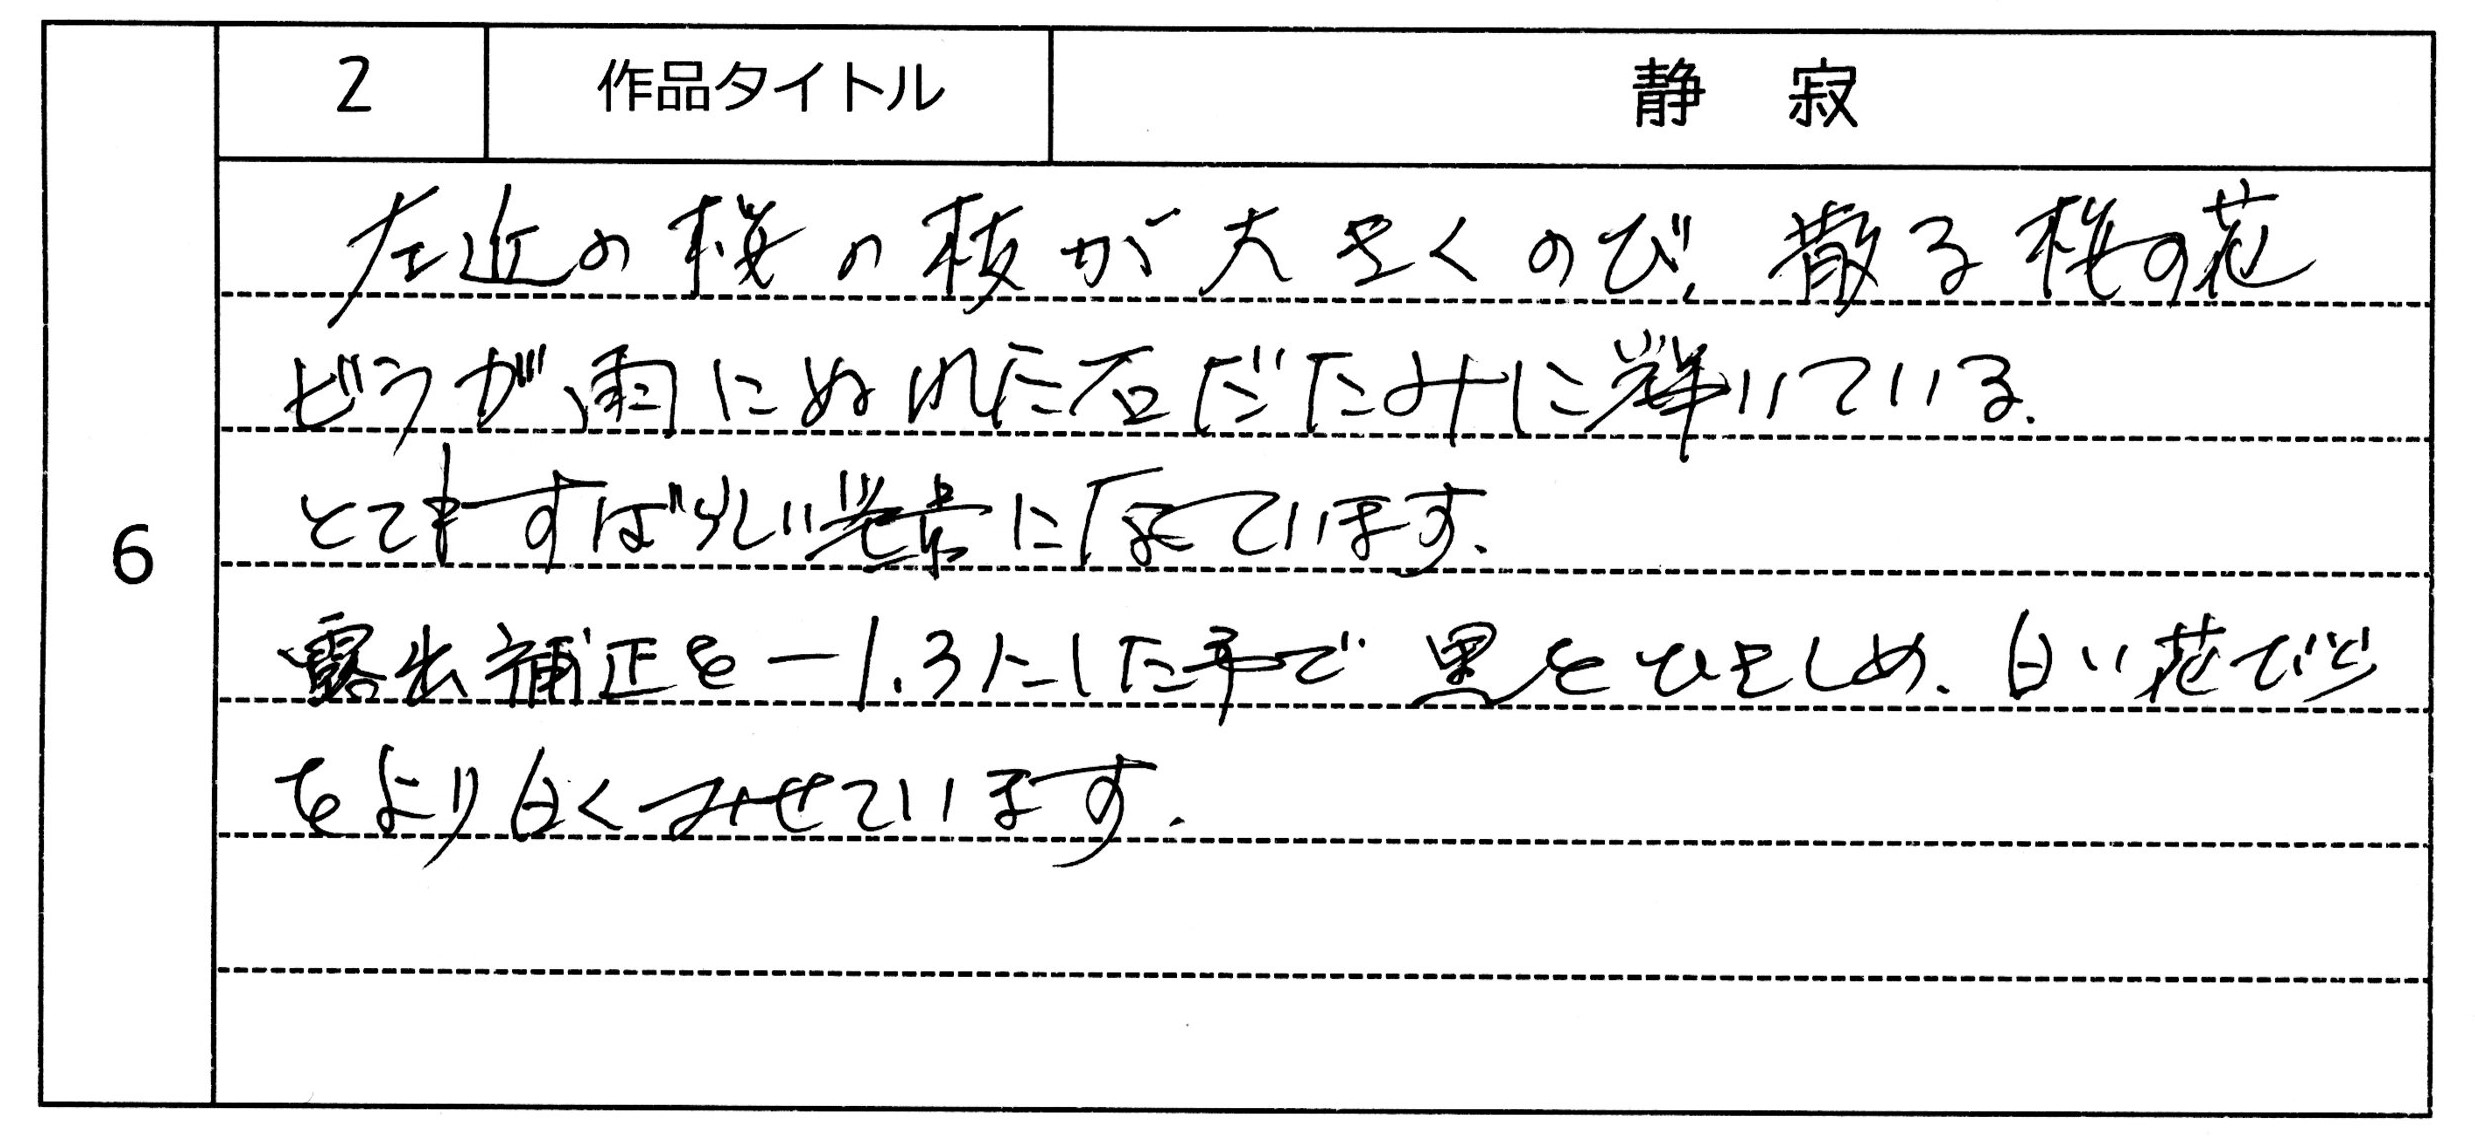 2 作品タイトル 静寂
左近の桜の枝が大きくのび、散る桜の花
びらが、雨にぬれた石だたみに輝いている。
とてもすばらしい光景になっています。
6
露出補正を-1.3にした事で黒をひきしめ、白い花びら
をより白くみせています。